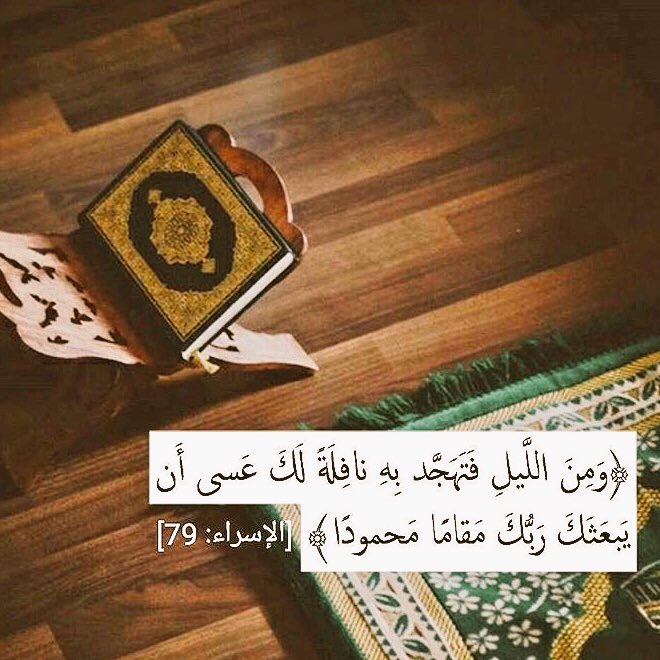 ﴿وَمِنَ اللَّيلِ فَتَهَجَّد بِهِ نافِلَةً لَكَ عَسى أَن
يَبعَثَكَ رَبُّكَ مَقامًا مَحمودًا﴾ [الإسراء: 79]